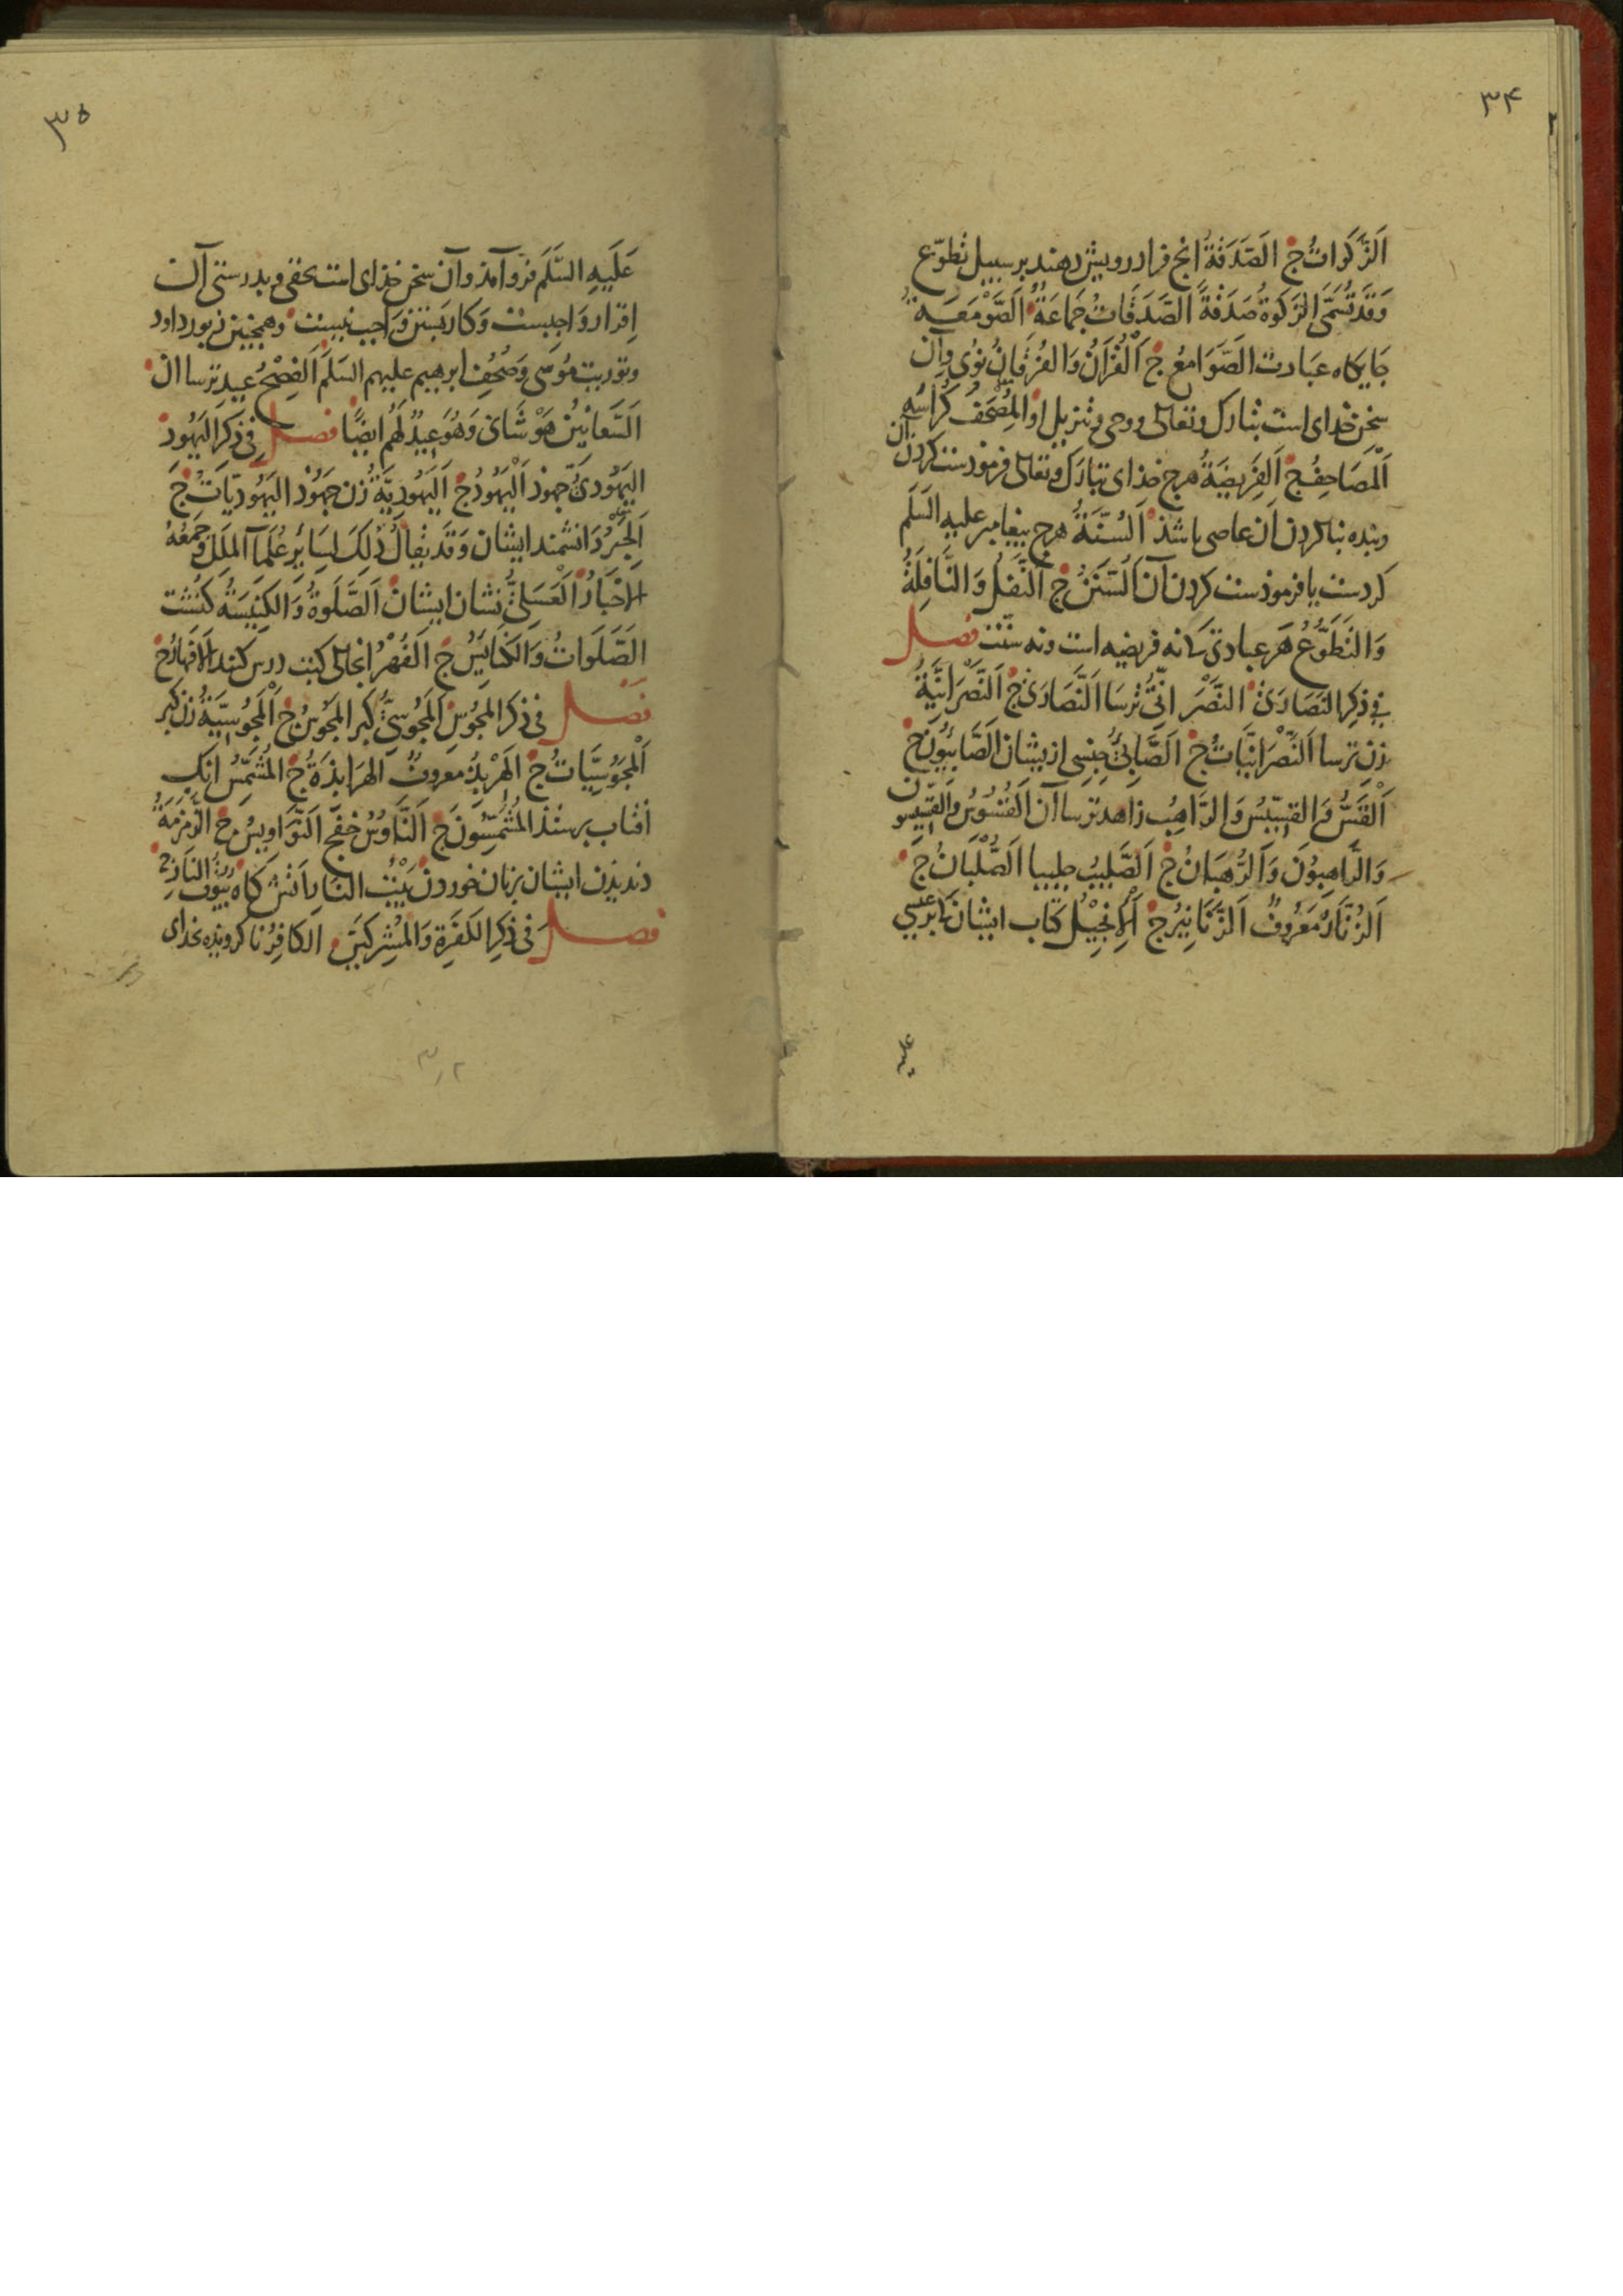 ۳۴
اَلزَّكَواتُ ج اَلصَّدَقَةُ انج فرا درويش دهند بر سبيل تطوّع
وَقَد تُسَمَّى الزَّكوةُ صَدَقَةً الصَّدَقاتُ جَمَاعَةٌ اَلصَّوْمَعَةُ
جَايكاه عبَادت الصَّوَامعُ ج اَلْقُرآنُ وَالفُرقَانُ نوُى وآن
سخن خداى است تبارك وتعالى ووحى وتنزيل او المُصْحَفُ كُرَّاسَه
اَلْمَصَاحِفُ ج اَلفَرِيضَةُ هرج خذاى تبارَك وتعالى فرمودست كردن آن
وبنده بنا كردن آن عاصى باشذ اَلسُّنَّةُ هرج پيغامبر عليه السَّلَم
كردست يا فرموذست كردن آن اَلسُّنَنُ ج اَلنَّفلُ وَالنَّافِلَةُ
وَالتَّطَوُّعُ هَر عبادتى كه نه فريضه است ونه سنّت فصل
فِى ذِكرِ النَّصَارَى النَّصْرَانىُّ ترسَا اَلنَّصَارَى ج اَلنَّصْرَانِيَّةُ
زن ترسا اَلنَّصْرَانِيَّاتُ ج اَلصَّابِىُّ جنسى ازيشان الصَّابِيُونَ ج
اَلْقَسُّ وَالقِسِّيسُ وَالرَّاهِبُ زاهد ترساآن اَلقُسُوسُ وَالقِسِّيسُونَ
وَالرَّاهِبُونَ وَالرُّهبَانُ ج اَلصَّلِيبُ چليپا اَلصُّلْبَانُ ج
اَلزُّنَّارُ مَعْرُوفٌ اَلزَّنَانِيرُ ج اَلْاِنجِيْلُ كتاب ايشان كه بر عيسى
عليه
۳۵
عَلَيهِ السَّلَم فرو آمذ وآن سخن خذاى است بحقى وبدرستى آن
اِقرار وَاجبست وَكار بَستن وَاجب نيست وهمچنين زبور داود
وتوريت مُوسَى وَصُحُف ابرهيم عليهم السَّلَم اَلفِصْحُ عيد ترساان
اَلسَّعَانِينُ هَوْشَاى وَهُوَ عِيدٌ لَهُم ايضًا فصل فِى ذكر اليَهُود
اليَهُودىُّ جهوذ اَلْيَهُودُ ج اَليَهُودِيَّةُ زن جهُوْذ اليَهُودِيَّاتُ ج
اَلحِبْرُ دَانشمند ايشان وَقَد يُقالُ ذلِكَ لِسَائِرِ عُلَمآءِ المِلَلِ وَجَمعُهُ
الاَحْبَارُ اَلْعَسَلِىُّ نشان ايشان اَلصَّلَوةُ وَالكَنِيسَةُ كنشت
اَلصَّلَوَاتُ وَالكَنَايِسُ ج اَلفُهْرُ انجاكى كتب درس كنند اَلاَفهَارُ ج
فصل فى ذكر المَجُوسِ اَلمَجُوسِىُّ كبر المَجُوسُ ج اَلْمَجُوسِيَّةُ زن كبر
اَلْمَجُوسِيَّاتُ ج الهِرْبِذُ معروفٌ الهَرَابِذَةُ ج المُشَمِّسُ انك
افتاب پرستذ المُشَمِّسُونَ ج اَلنَّاوُسُ اَلنَّوَاوِيسُ ج الزَّمزَمَةُ
دنديدن ايشان بزنان خوردن بَيْتُ النَّارِ آتش كاه بُيُوتُ النَّارِ ج
فصل فى ذِكرِ الكَفَرَةِ وَالمُشرِكِينَ الكافِرُ ناكرونده بخداى